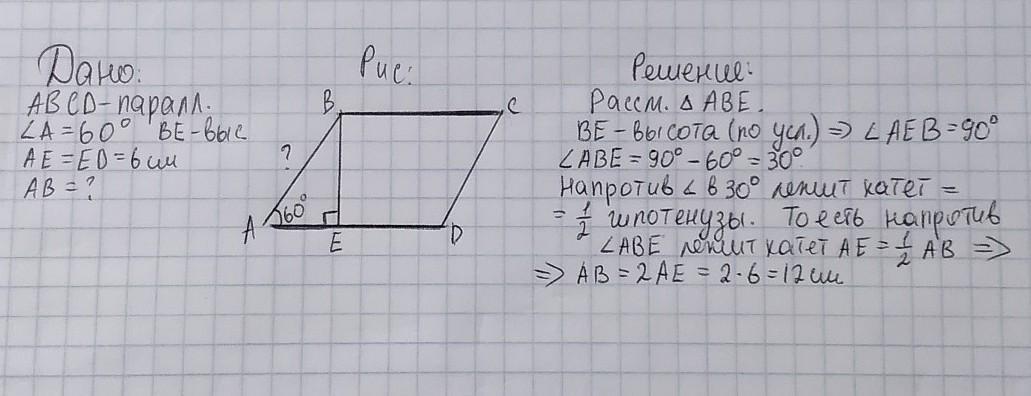 Дано:
ABCD-паралл.
∠A=60° BE-выс
AE=ED=6см
AB=?
Рис:
B
C
?
60°
A
E
D
Решение:
Рассм. △ ABE.
BE-высота (по усл.) => ∠AEB=90°
∠ABE=90°-60°=30°
Напротив ∠ в 30° лежит катет =
= 1/2 гипотенузы. То есть напротив
∠ABE лежит катет AE=1/2 AB =>
=> AB=2AE=2·6=12см